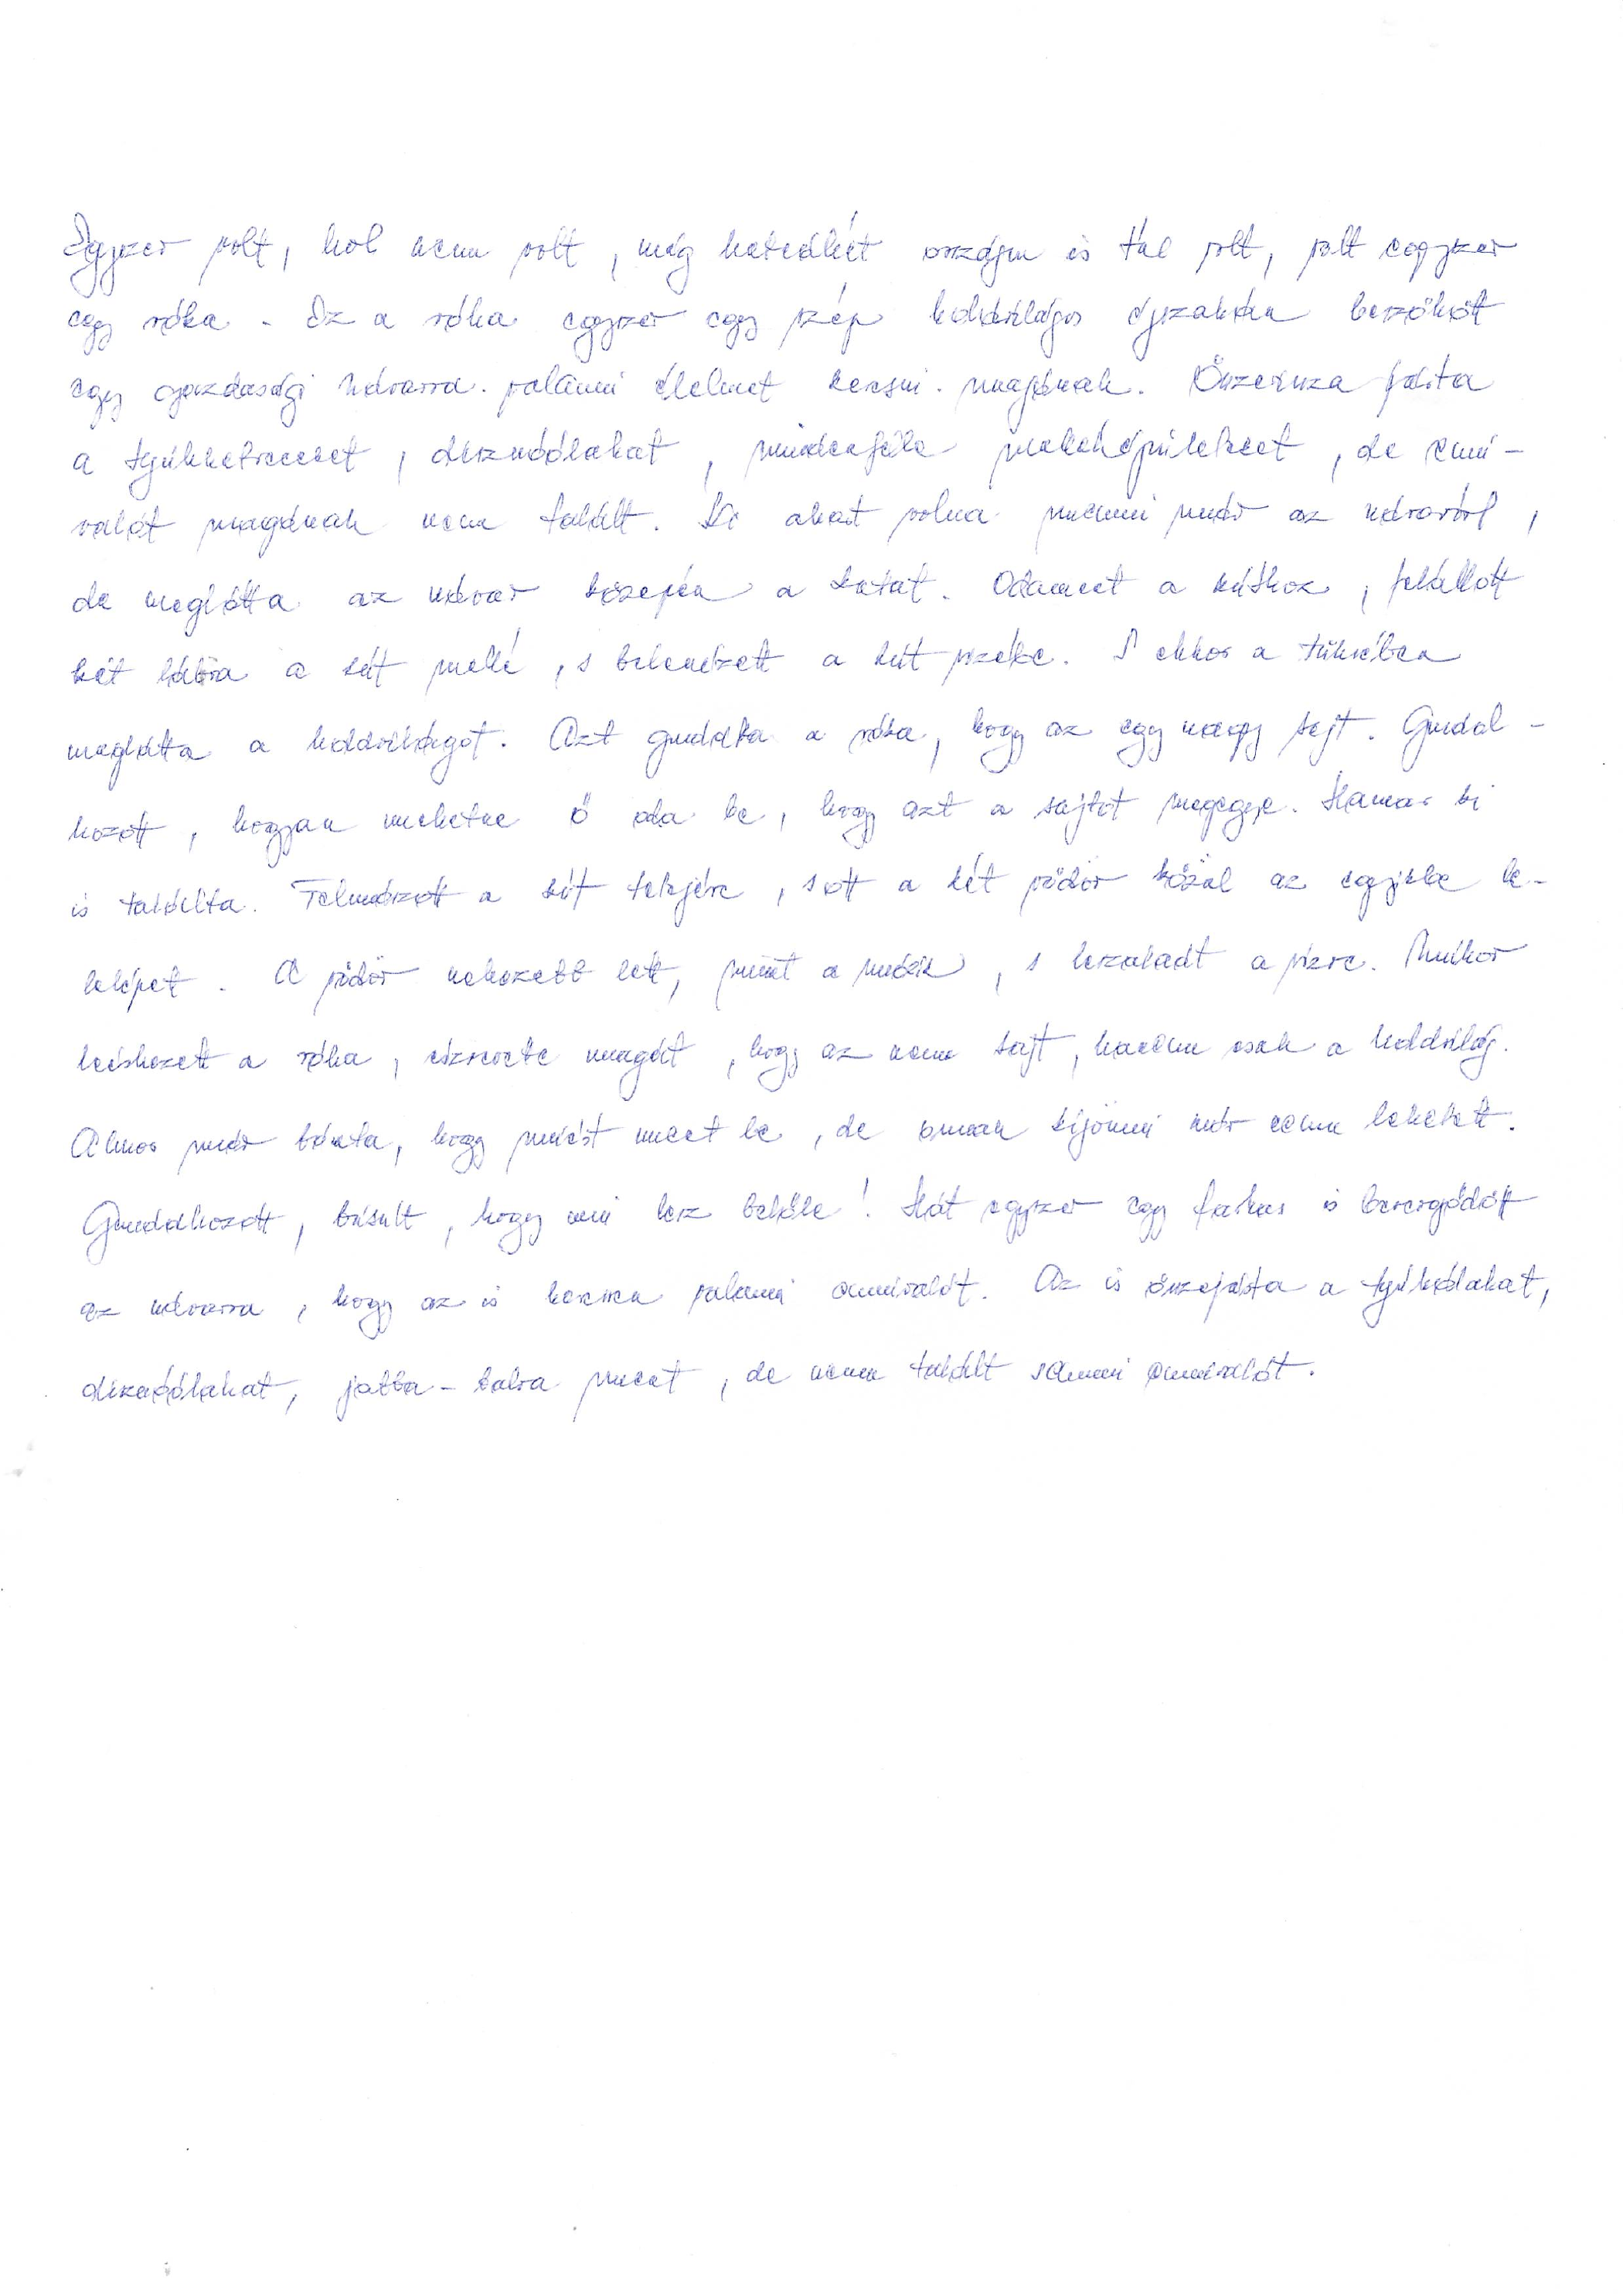 Egyszer volt, hol nem volt, még hetedhét országon is túl volt, volt egyszer
egy róka. Ez a róka egyszer egy szép holdvilágos éjszakán beszökött
egy gazdasági udvarra valami élelmet keresni magának. Össze-vissza járta
a tyúkketreceket, disznóólakat, mindenféle melléképületeket, de enni-
valót magának nem talált. Ki akart volna menni már az udvaról,
de meglátta az udvar közepén a kutat. Odament a kúthoz, felállott
két lábra a kút mellé, s belenézett a kút vizébe. S ekkor a tükrében
meglátta a holdvilágot. Azt gondolta a róka, hogy az egy nagy sajt. Gondol-
kozott, hogyan mehetne ő oda be, hogy azt a sajtot megegye. Hamar ki
is találta. Felmászott a kút tetejére, s ott a két vödör közül az egyikbe be-
lelépet. A vödör nehezebb lett, mint a másik, s leszaladt a vízre. Mikor
leérkezett a róka, észrevette magát, hogy az nem sajt, hanem csak a holdvilág.
Akkor már bánta, hogy miért ment be, de onnan kijönni már nem lehetett.
Gondolkozott, búsult, hogy mi lesz belőle! Hát egyszer egy farkas is bevergődött
az udvarra, hogy az is keressen valami ennivalót. Az is összejárta a tyúkólakat,
disznóólakat, jobbra-balra ment, de nem talált semmi ennivalót.